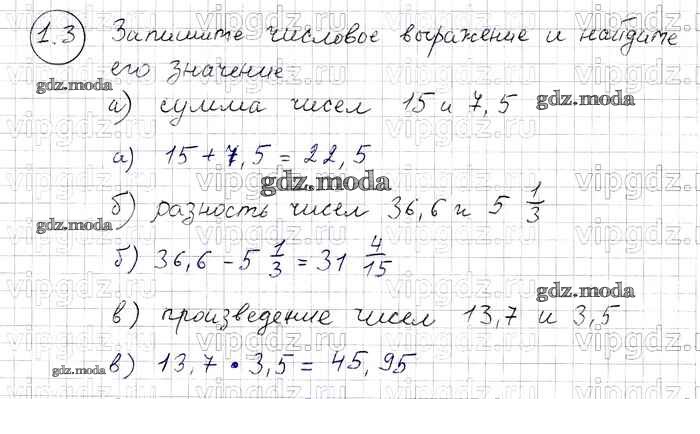 1.3 Запишите числовое выражение и найдите
его значение
gdz.moda
а) сумма чисел 15 и 7,5 gdz.moda
а) 15 + 7,5 = 22,5
gdz.moda
б) разность чисел 36,6 и 5 1/3
gdz.moda
б) 36,6 - 5 1/3 = 31 4/15
gdz.moda
в) произведение чисел 13,7 и 3,5
в) 13,7 · 3,5 = 45,95
gdz.moda
vipgdz.ru